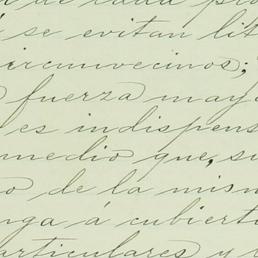 de cada pro
se evitan lit
ircunvecinos;
fuerza mayo
es indispens
medio que, su
o de la mism
nga á cubiert
articulares y